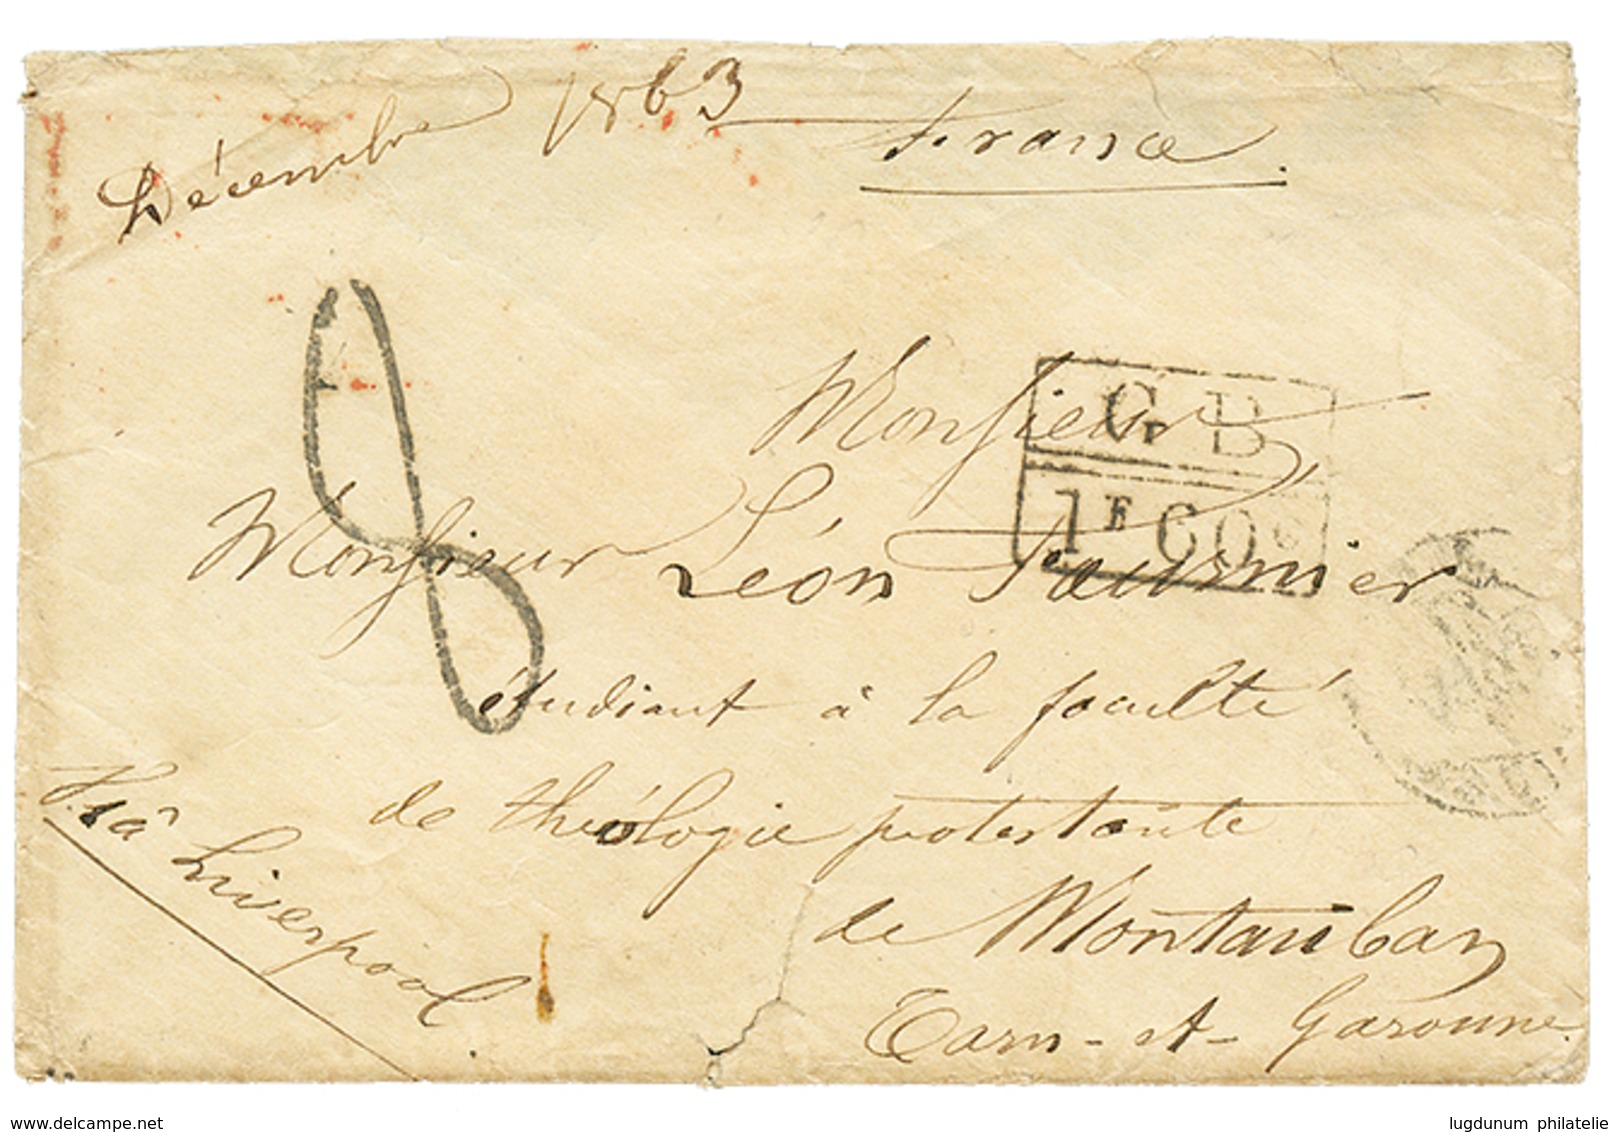 Décembre 1863
France.
8
G B
1F 60c
Monsieur
Monsieur Léon Fournier
étudiant à la faculté
de théologie protestante
de Montauban
Tarn-et-Garonne
Viâ Liverpool
www.delcampe.net
lugdunum philatelie